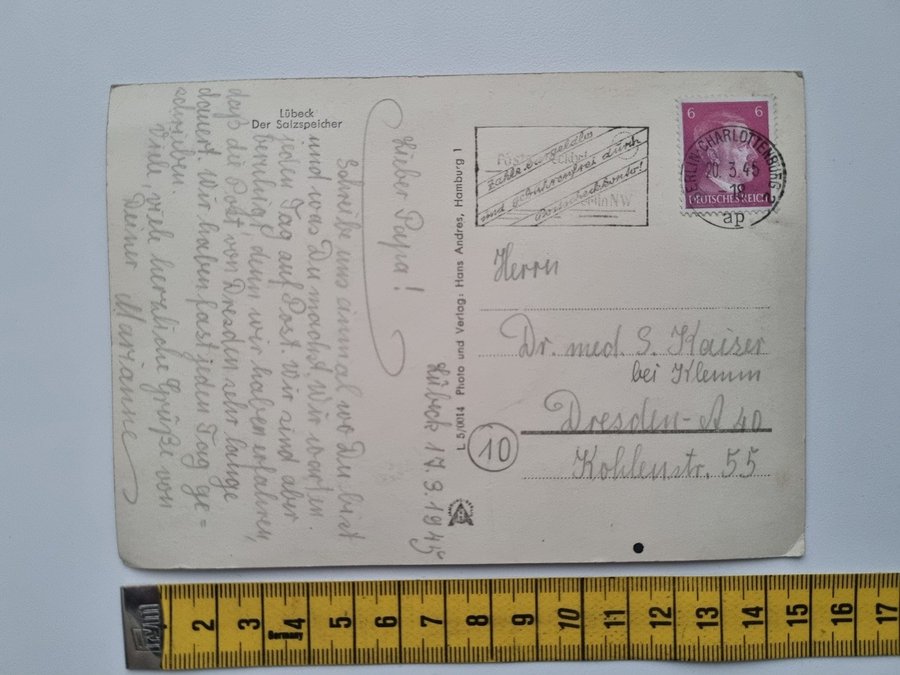 Lübeck
Der Salzspeicher
Lübeck 17.3.1945
Lieber Papa!
Schreibe uns einmal wo Du bist
und was Du machst. Wir warten
jeden Tag auf Post. Wir sind aber
beruhigt, denn wir haben erfahren,
daß die Post von Dresden sehr lange
dauert. Wir haben fast jeden Tag ge=
schrieben.
Viele, viele herzliche Grüße von
Deiner Marianne
L 5/0014 Photo und Verlag: Hans Andres, Hamburg 1
zahle bargeldlos
und gebührenfrei durch
Postscheckkonto!
6 6
DEUTSCHES REICH
BERLIN-CHARLOTTENBURG 2
20.3.45
18
ap
Herrn
Dr. med. S. Kaiser
bei Klemm
10
Dresden-A 40
Kohlenstr. 55
2 3 4 5 6 7 8 9 10 11 12 13 14 15 16 17
Germany